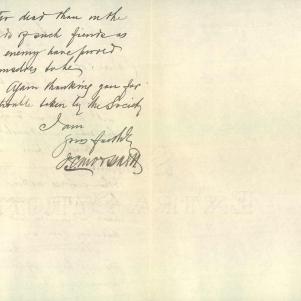 dead than in the
of such fiends as
enemy have proved
to be,
Again thanking you for
trouble taken by the Society
I am
yours faithfully